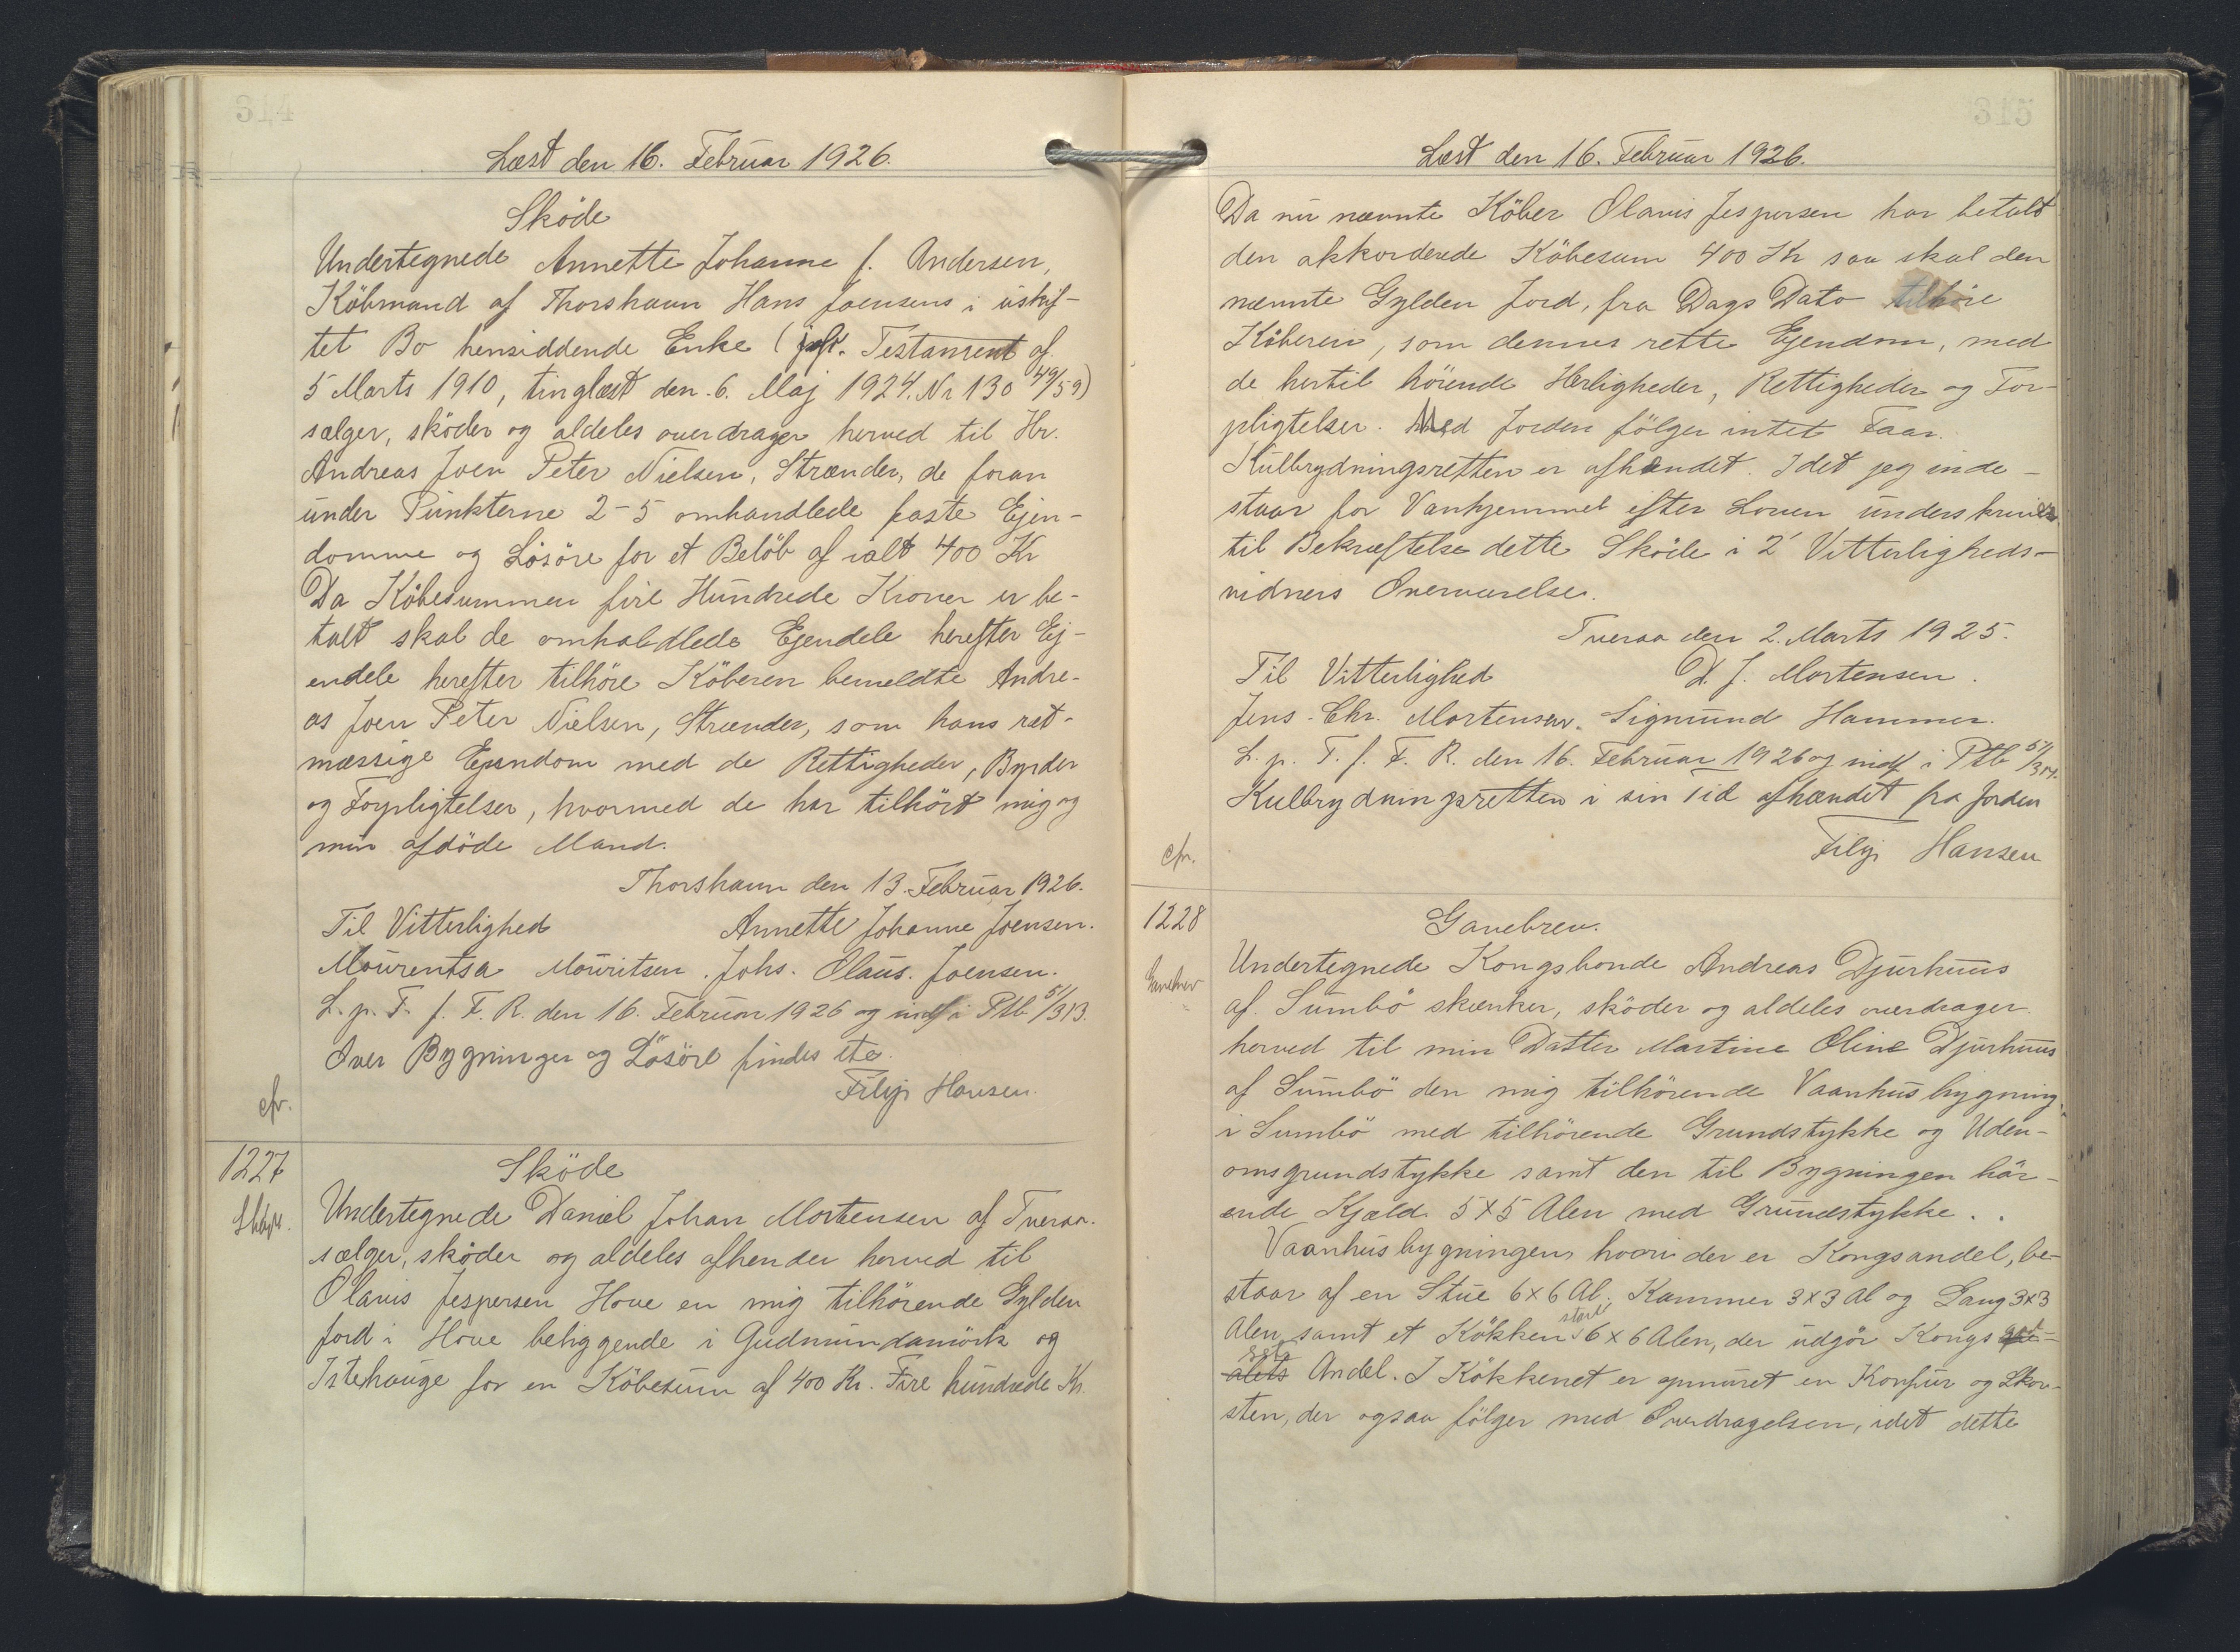 Læst den 16. Februar 1926.
Sköde
Undertegnede Annette Johanne f. Andersen,
Köbmand af Thorshavn Hans Joensens i uskif-
tet Bo hensiddende Enke (jvfr. Testament af
5 Marts 1910, tinglæst den 6. Maj 1924. Nr 130 49/59)
sælger, sköder og aldeles overdrager herved til Hr.
Andreas Joen Peter Nielsen, Strænder, de foran
under Punkterne 2-5 omhandlede faste Ejen-
domme og Lösöre for et Belöb af ialt 400 Kr
Da Köbesummen fire Hundrede Kroner er be-
talt skal de omhaldlede Ejendele herefter Ej-
endele herefter tilhöre Köberen bemeldte Andre-
as Joen Peter Nielsen, Strænder, som hans ret-
mæssige Ejendom med de Rettigheder, Byrder
og Forpligtelser, hvormed de har tilhört mig og
min afdöde Mand.
Thorshavn den 13. Februar 1926.
Til Vitterlighed Annette Johanne Joensen.
Mourentsa Mouritsen. Johs. Olaus. Joensen.
L. p. T. f. F. R. den 16. Februar 1926 og indf i Ptb 51/313.
Over Bygninger og Lösöre findes etc.
Filip Hansen.
cfr.
1227
Sköde
Undertegnede Daniel Johan Mortensen af Tveraa.
sælger, sköder og aldeles afhender herved til
Olavis Jespersen Hove en mig tilhörende Gylden
Jord i Hove beliggende i Gudmundamörk og
Istehauge for en Köbesum af 400 Kr. Fire hundrede Kr.
314
315
Læst den 16. Februar 1926.
Da nu nævnte Köber Olavis Jespersen har betalt
den akkorderede Köbesum 400 Kr saa skal den
nævnte Gylden Jord, fra Dags Dato tilhöre
Köberen, som dennes rette Ejendom, med
de hertil hörende Herligheder, Rettigheder og For-
pligtelser. Med Jorden fölger intet Faar.
Kulbrydningsretten er afhændet. Idet jeg inde-
staar for Vanhjemmel efter Loven underskriver
til Bekræftelse dette Sköde i 2' Vitterligheds-
vidners Overværelse.
Tveraa den 2. Marts 1925.
Til Vitterlighed D. J. Mortensen.
Jens. Chr. Mortensen. Sigmund Hammer.
L. p. T. f. F. R. den 16. Februar 1926 og indf i Ptb 51/314.
Kulbrydningsretten i sin Tid afhændet fra Jorden
cfr. Filip Hansen
1228
Gavebrev.
Gavebrev
Undertegnede Kongsbonde Andreas Djurhuus
af Sumbö skænker, sköder og aldeles overdrager
herved til min Datter Martine Oline Djurhuus
af Sumbö den mig tilhörende Vaanhusbygning
i Sumbö med tilhörende Grundstykke og Uden-
omsgrundstykke samt den til Bygningen hör-
ende Kjæld 5x5 Alen med Grundstykke.
Vaanhusbygningen, hvori der er Kongsandel, be-
staar af en Stue 6x6 Al., Kammer 3x3 Al og Gang 3x3
Alen, samt et Kökken stort 6x6 Alen, der udgör Kongs
Andel. I Kökkenet er opmuret en Komfur og Skor-
sten, der ogsaa fölger med Overdragelsen, idet dette